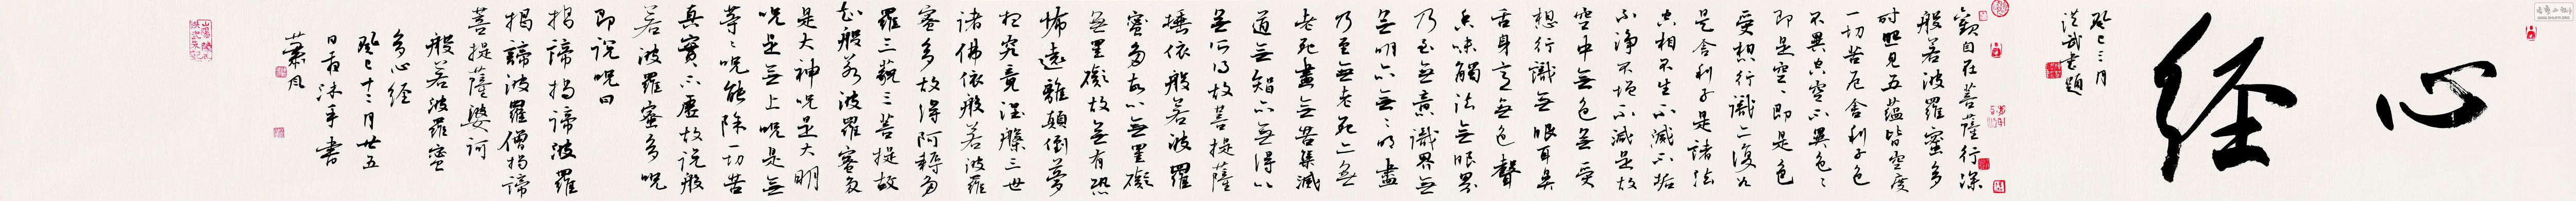 心经
癸巳三月
洪武書題
觀自在菩薩行深
般若波羅蜜多
时照見五蕴皆空度
一切苦厄舍利子色
不異空空不異色々
即是空々即是色
受想行識亦復如
是舍利子是諸法
空相不生不滅不垢
不淨不增不減是故
空中無色無受
想行識無眼耳鼻
舌身意無色聲
香味觸法無眼界
乃至無意識界無
無明亦無々明盡
乃至無老死亦無
老死盡無苦集滅
道無智亦無得以
無所得故菩提薩
埵依般若波羅
蜜多故心無罣礙
無罣礙故無有恐
怖遠離顛倒夢
想究竟涅槃三世
諸佛依般若波羅
蜜多故得阿耨多
羅三藐三菩提故
知般若波羅蜜多
是大神咒是大明
咒是無上咒是無
等々咒能除一切苦
真實不虛故說般
若波羅蜜多咒
即說咒曰
揭諦揭諦波羅
揭諦波羅僧揭諦
菩提薩婆訶
般若波羅蜜
多心经
癸巳十二月廿五
日沐手書
蕭風